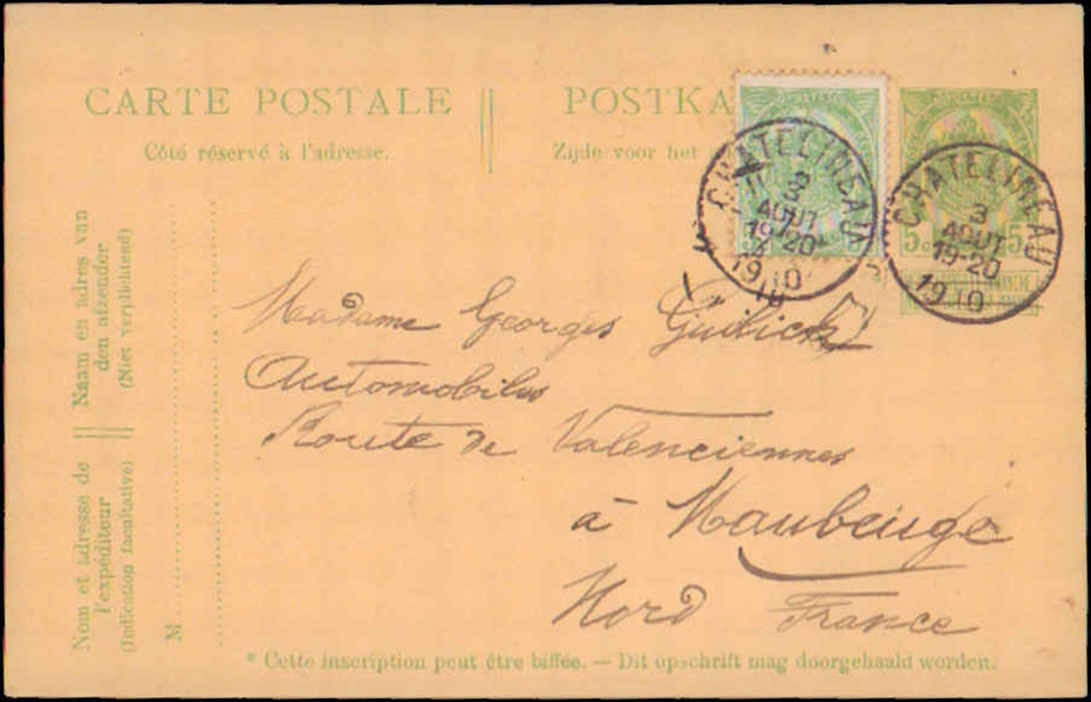 CARTE POSTALE || POSTKA
Côté réservé à l'adresse.
Zijde voor het
CHATELINEAU
3
AOUT
19-20
1910
CHATELINEAU
3
AOUT
19-20
1910
5c 5c
Madame Georges
Automobiles
Route de Valenciennes
à Maubeuge
Nord France
Nom et adresse de || Naam en adres van
l'expéditeur den afzender
(Indication facultative). (Niet verplichtend)
M.
* Cette inscription peut être biffée. — Dit opschrift mag doorgehaald worden.